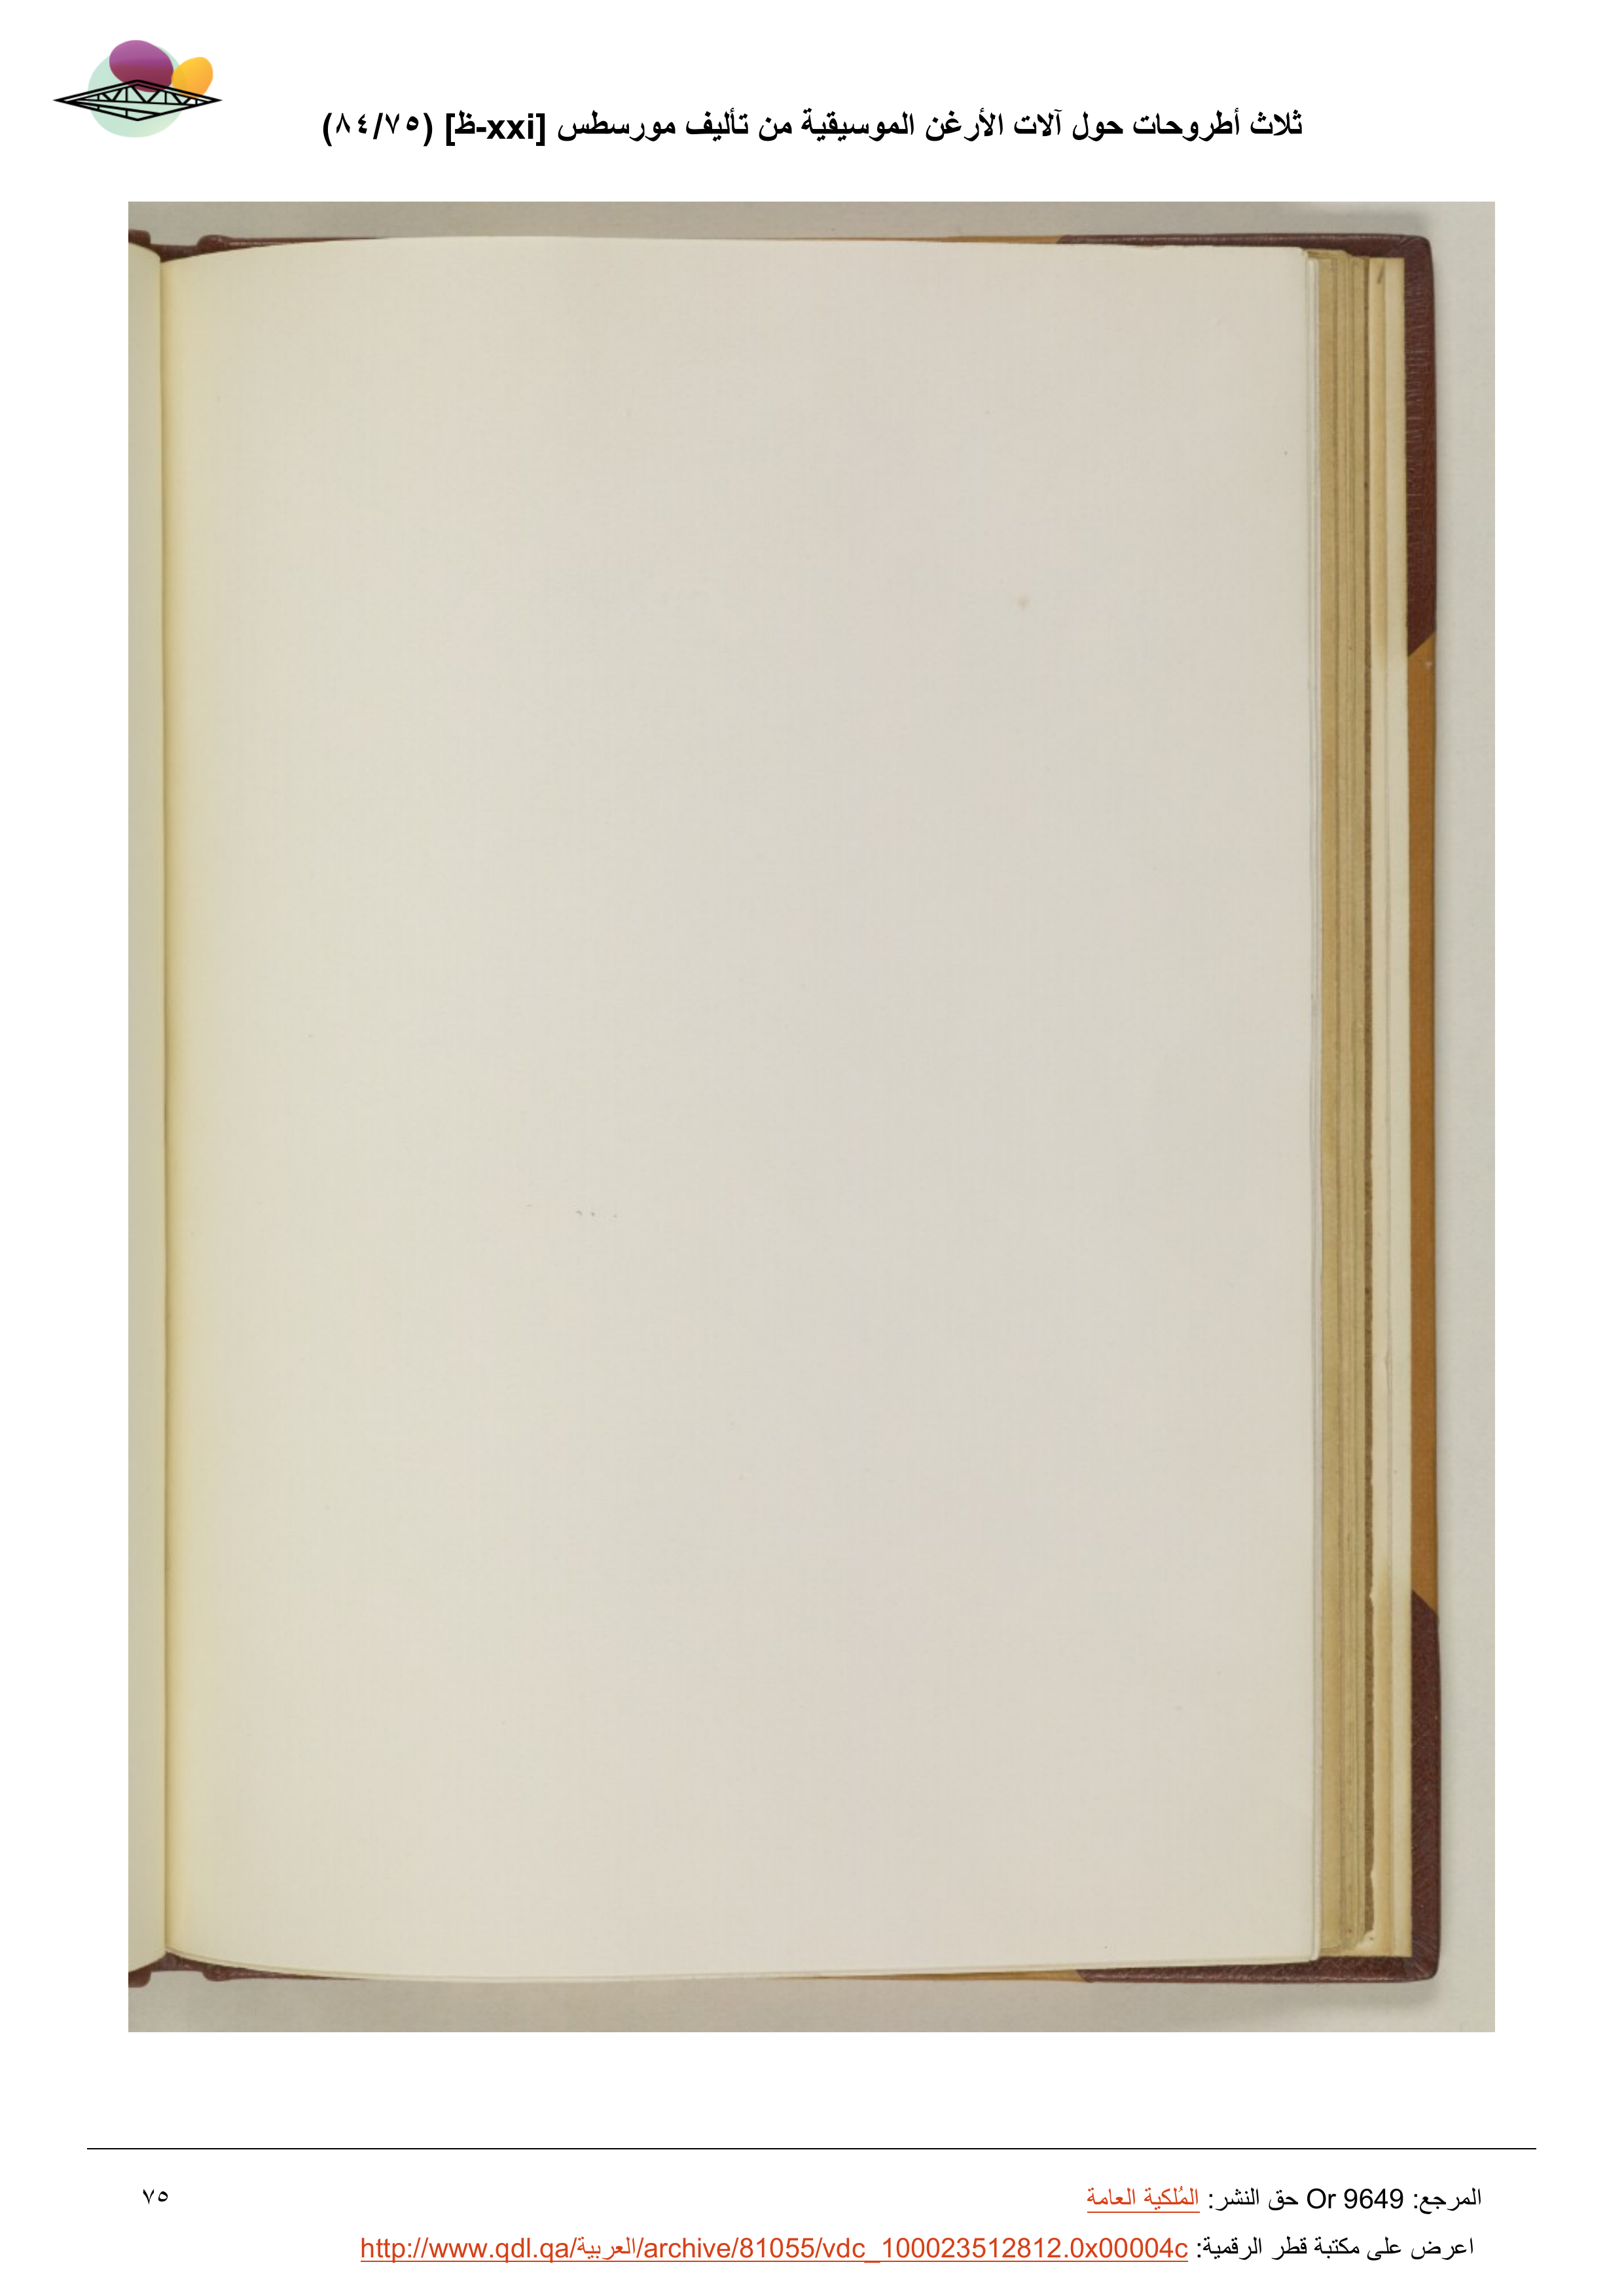 ثلاث أطروحات حول آلات الأرغن الموسيقية من تأليف مورسطس [xxi-ظ] (٨٤/٧٥)
المرجع: Or 9649 حق النشر: المُلكية العامة
٧٥
اعرض على مكتبة قطر الرقمية: http://www.qdl.qa/العربية/archive/81055/vdc_100023512812.0x00004c